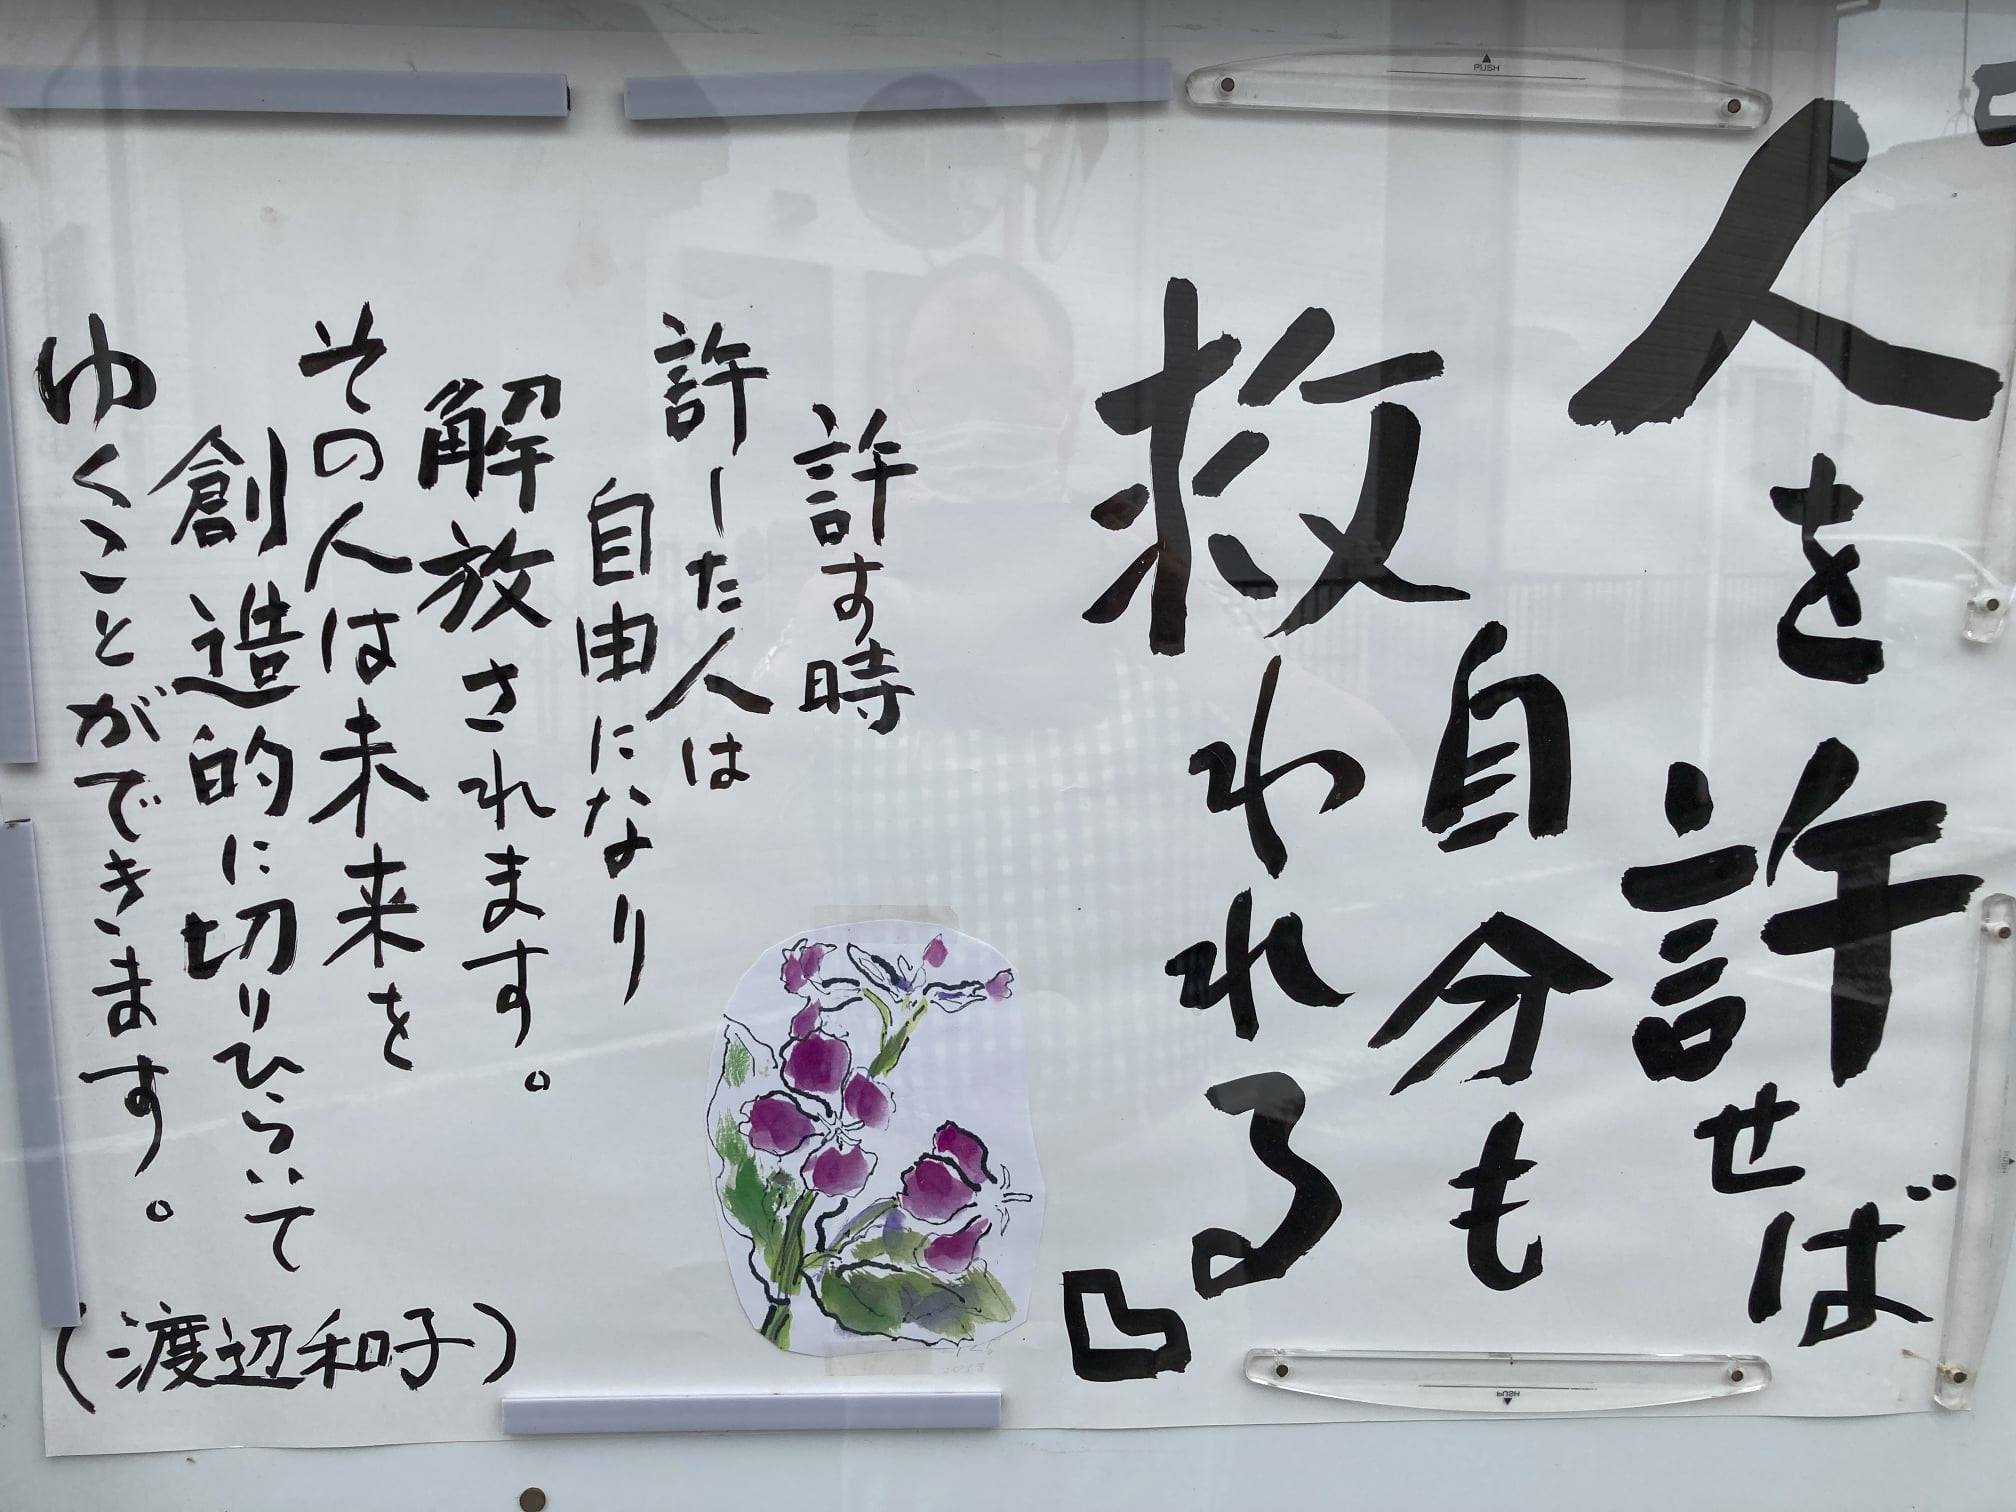 『人を許せば
自分も
救われる』
許す時
許した人は
自由になり
解放されます。
その人は未来を
創造的に切りひらいて
ゆくことができます。
(渡辺和子)
PUSH
PUSH
PUSH